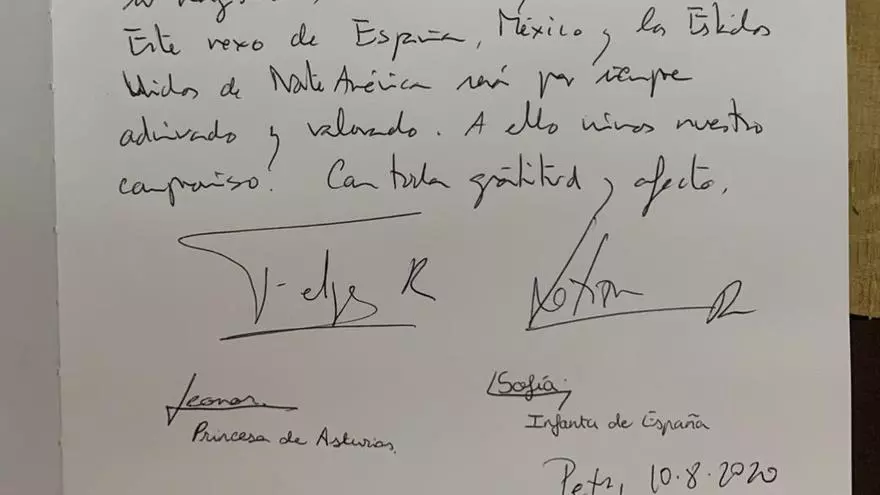 Este nexo de España, México y los Estados
Unidos de Norte América será por siempre
admirado y valorado. A ello unimos nuestro
compromiso! Con toda gratitud y afecto,
Felipe R
Letizia R
Leonor
Princesa de Asturias
Sofía
Infanta de España
10.8.2020